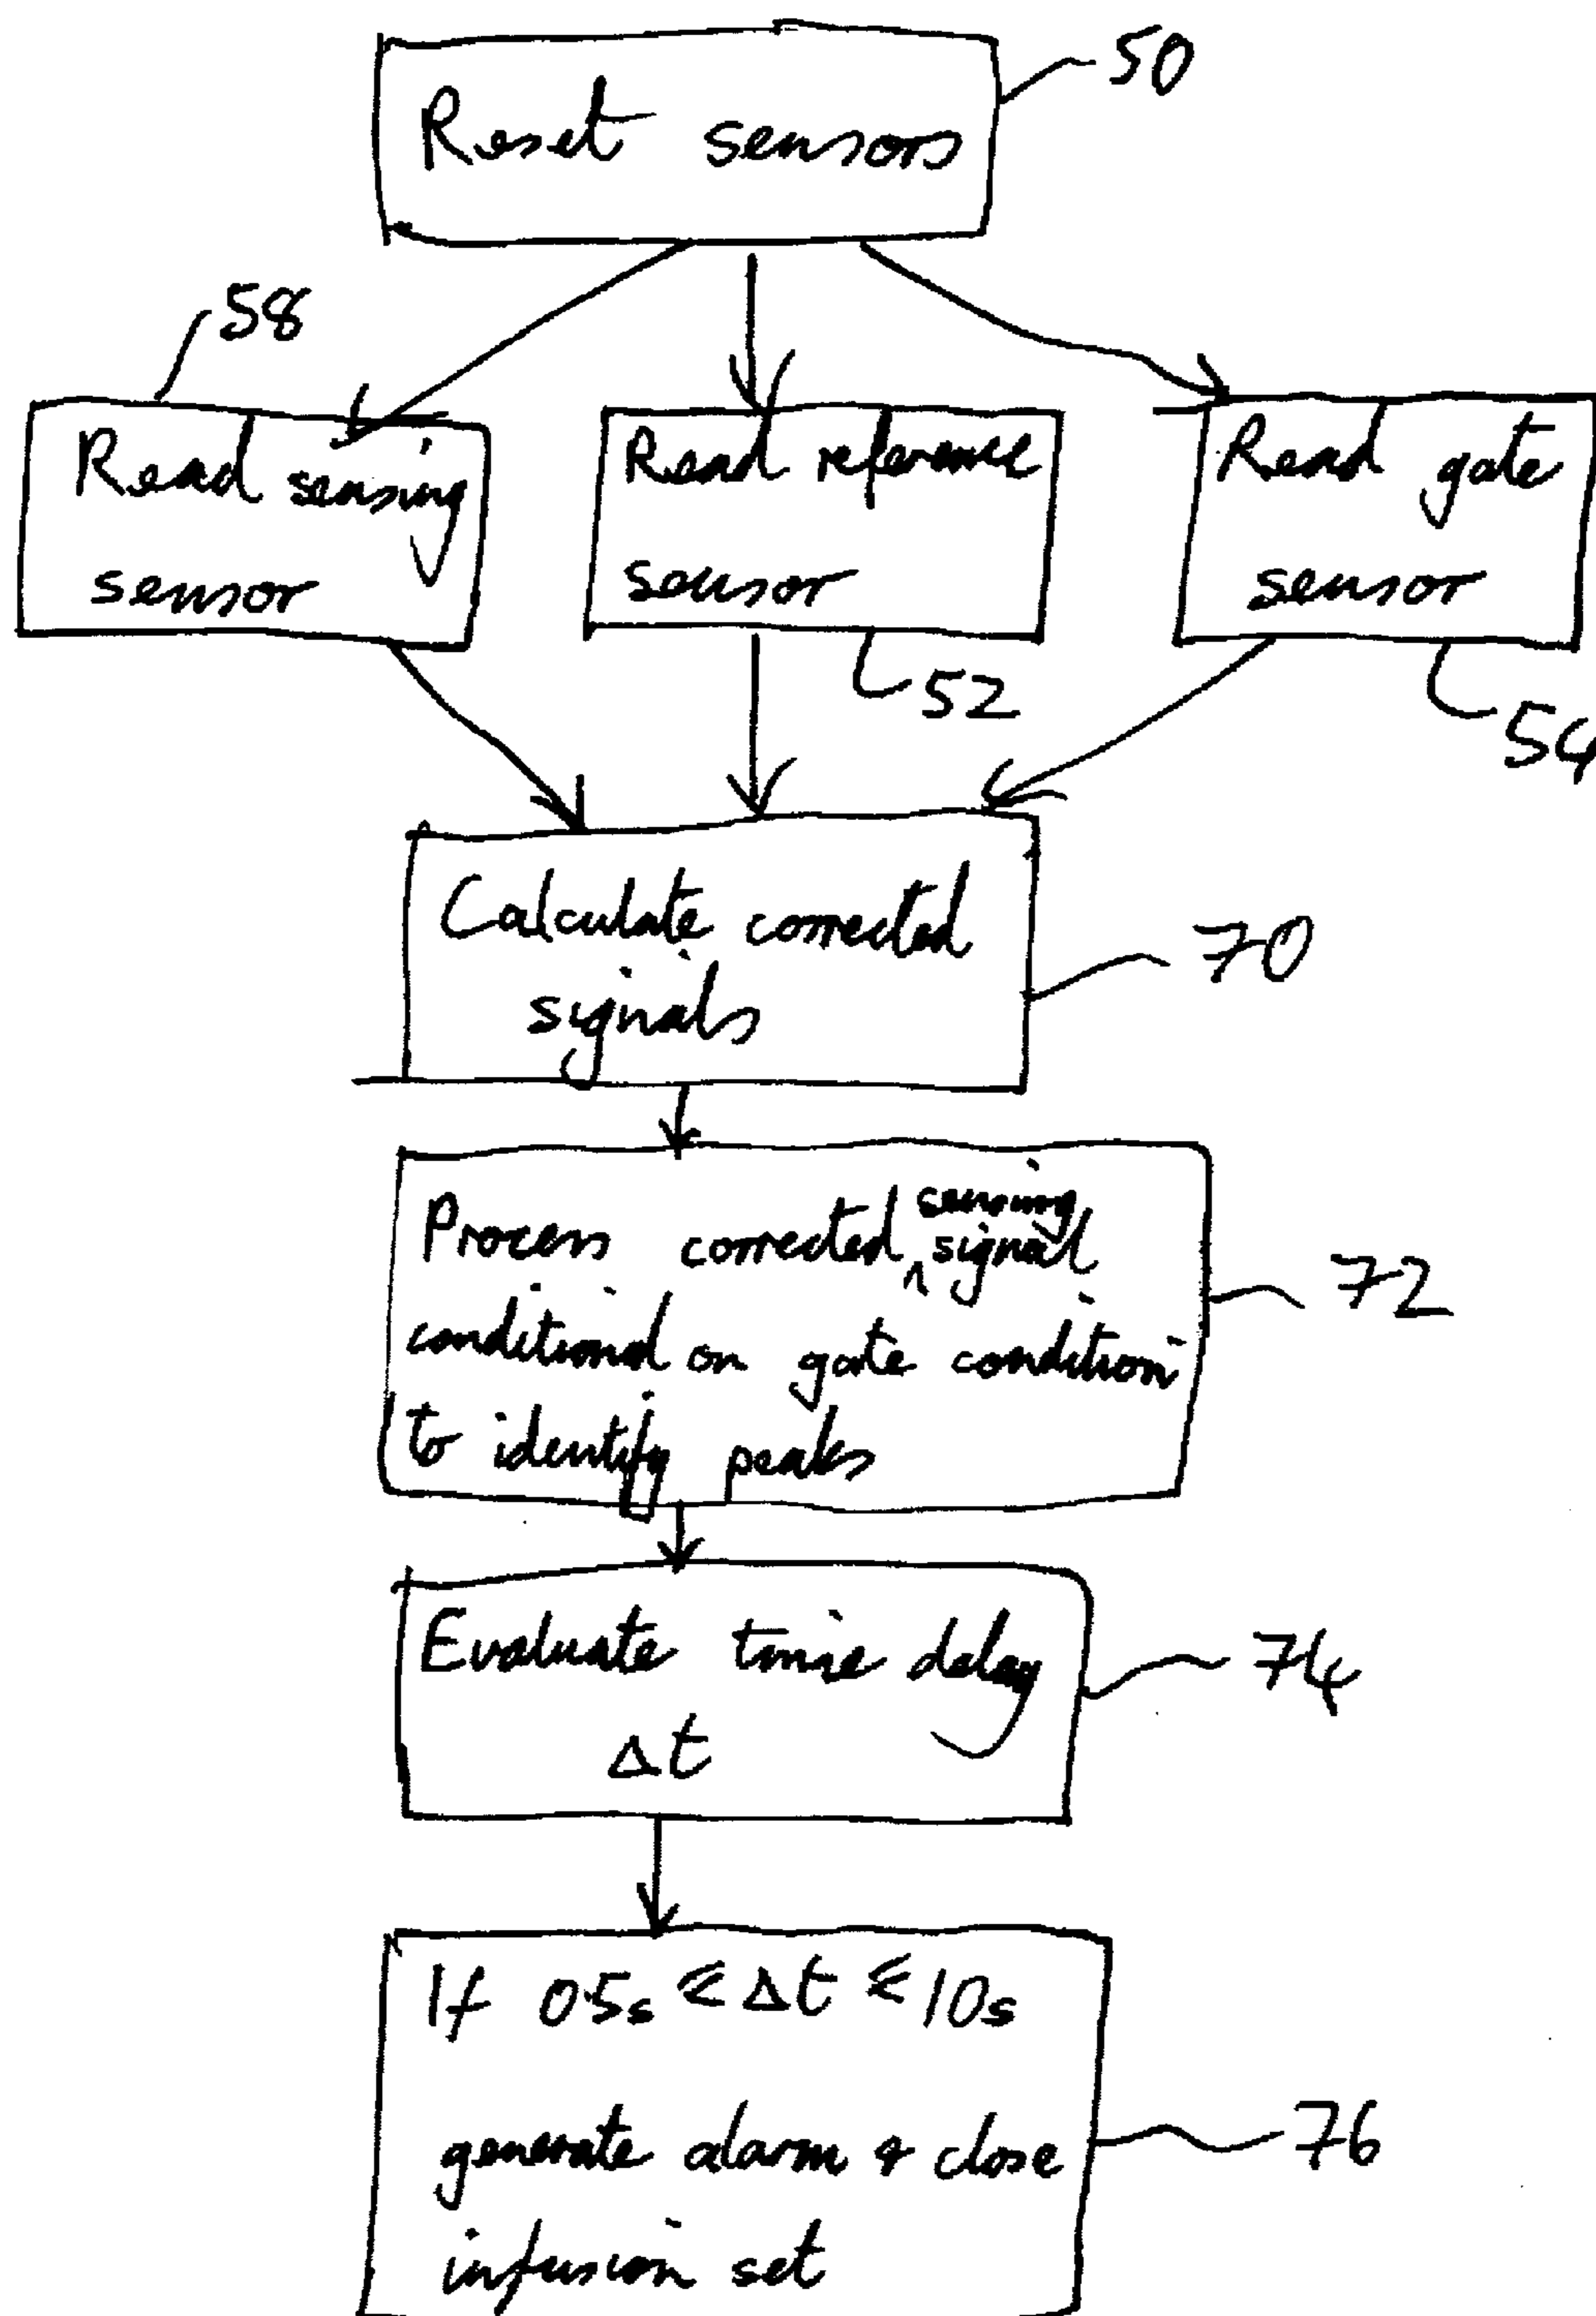 50
Reset sensors
58
Read sensing
sensor
Read reference
sensor
52
Read gate
sensor
54
Calculate corrected
signals
70
Process corrected ^ sensing signal
conditional on gate condition
to identify peaks
72
Evaluate time delay
Δt
74
If 0.5s ≤ Δt ≤ 10s
generate alarm & close
infusion set
76